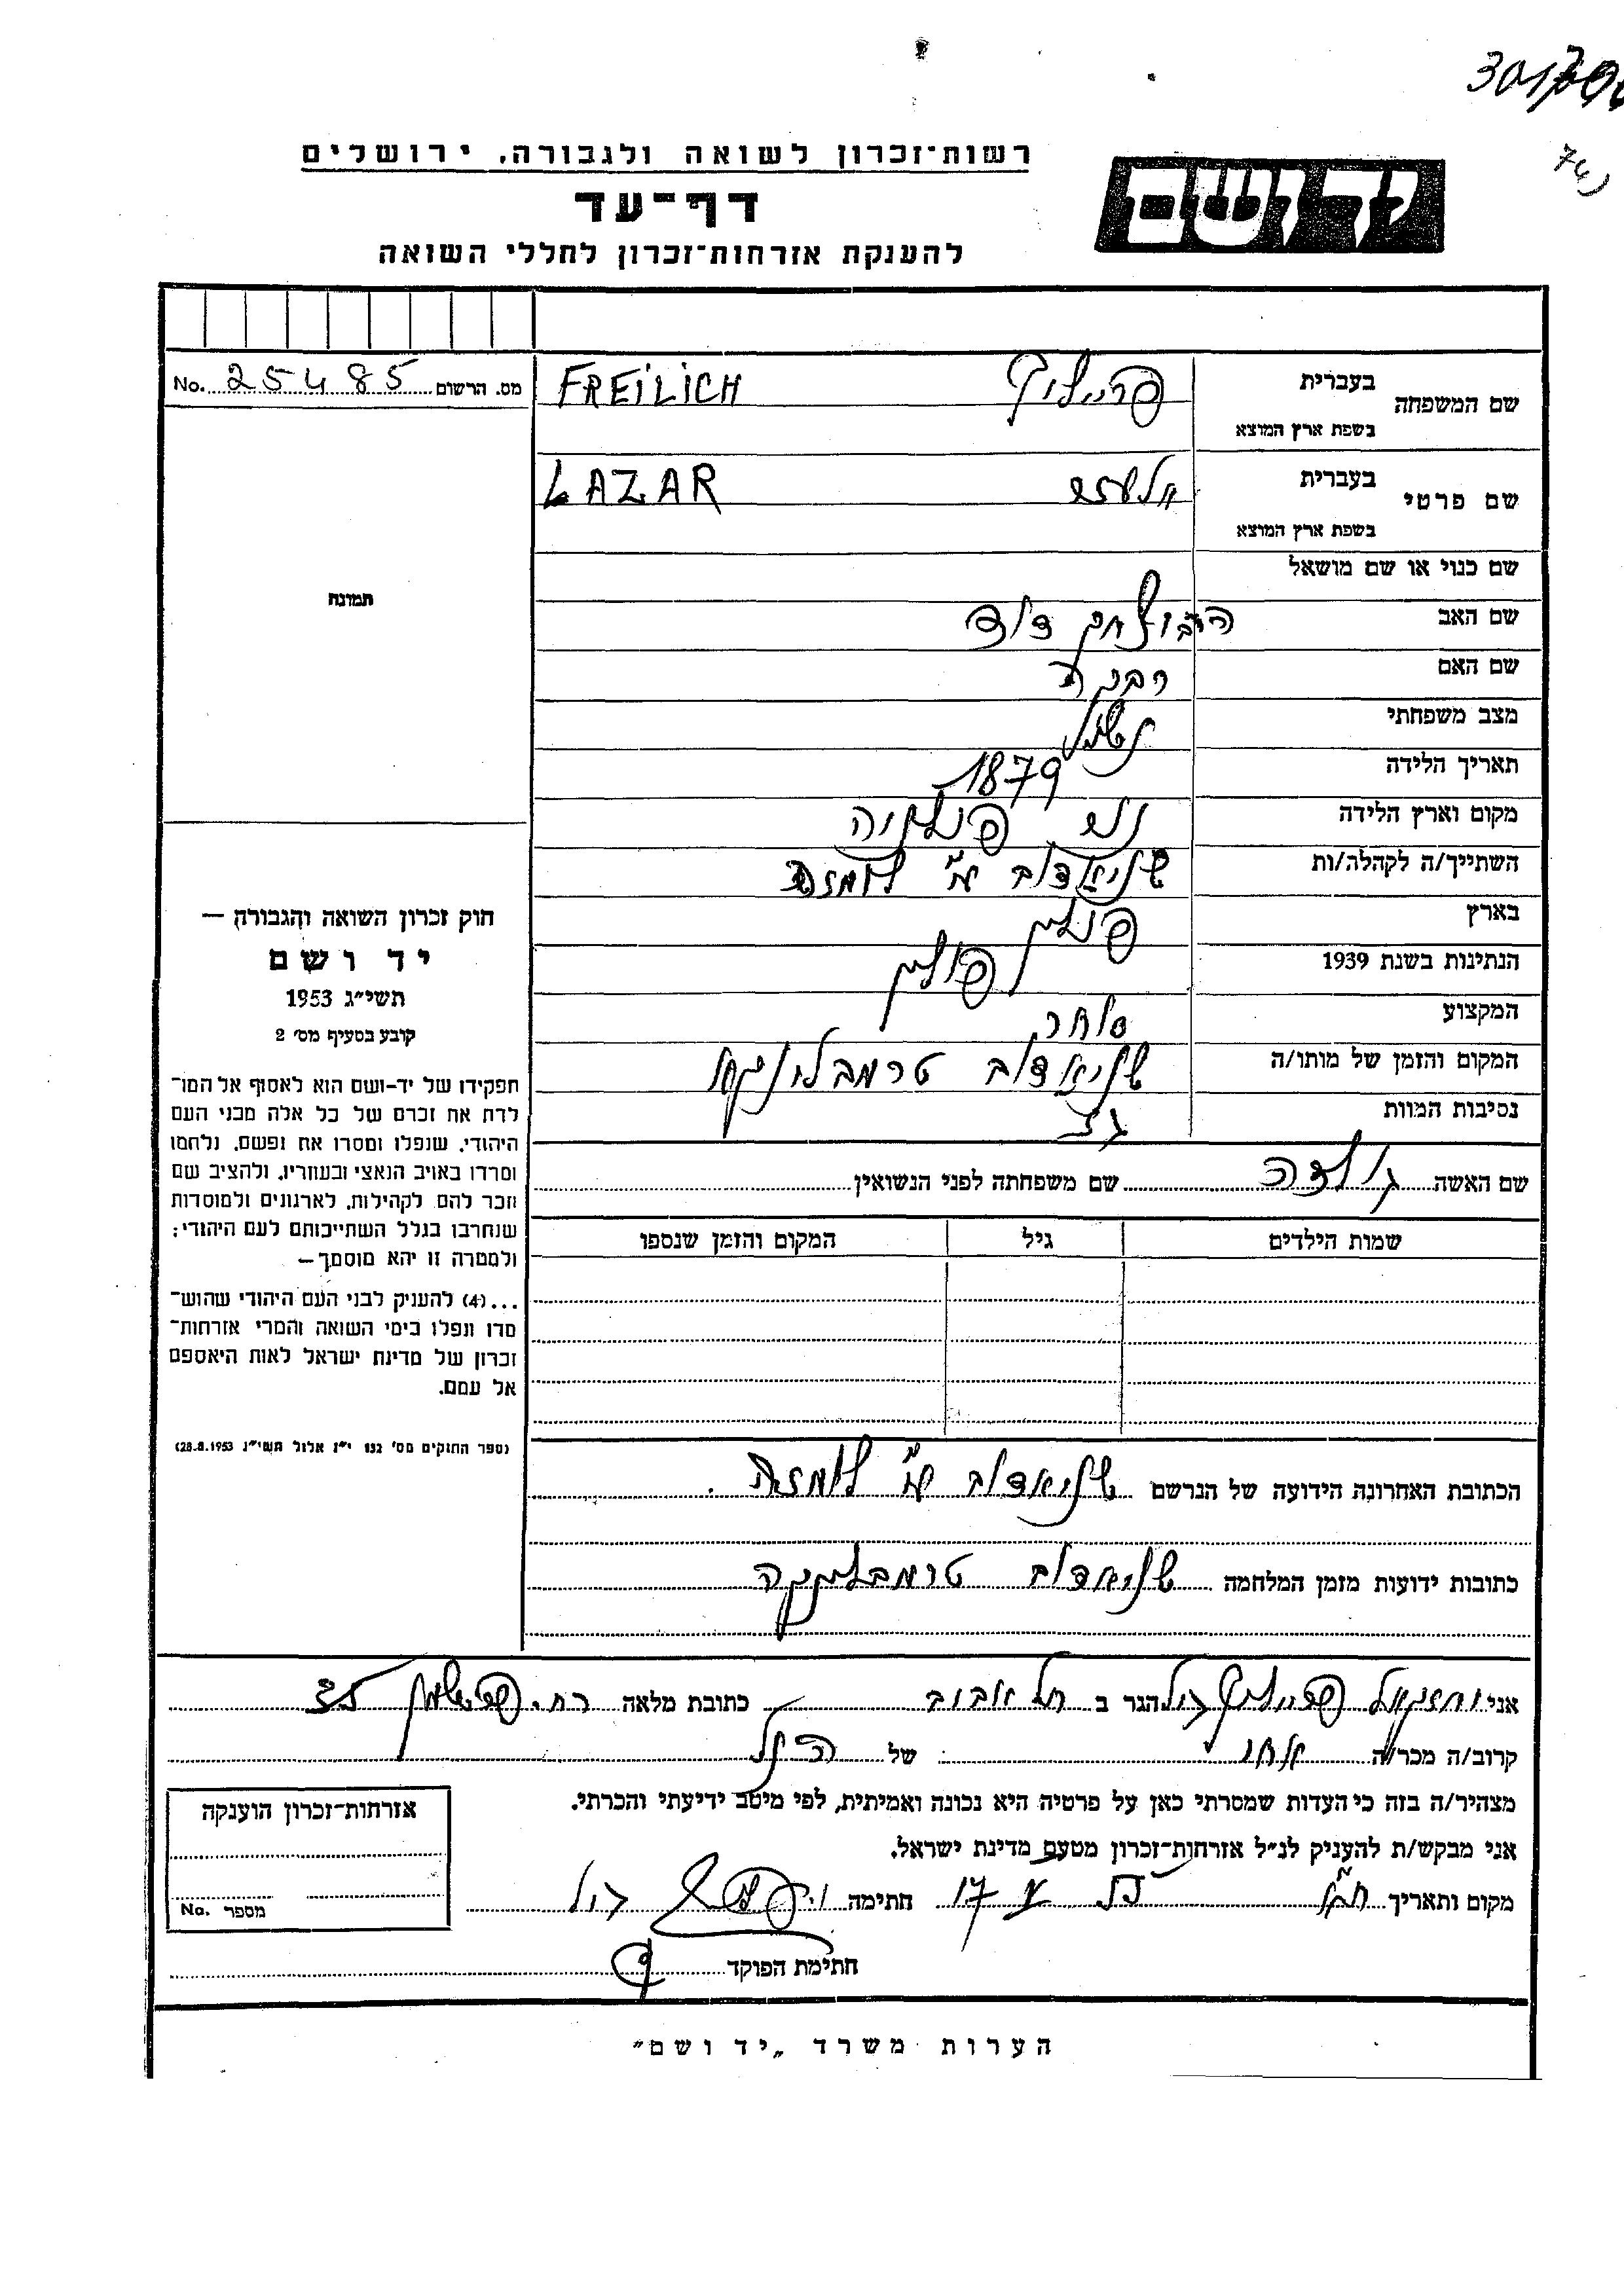 רשות־זכרון לשואה ולגבורה, ירושלים
דף־עד
להענקת אזרחות־זכרון לחללי השואה
יד ושם
שם המשפחה בעברית פריילוך FREILICH
בשפת ארץ המוצא
שם פרטי בעברית אלעזר LAZAR
בשפת ארץ המוצא
שם כנוי או שם מושאל
שם האב דוד
שם האם רבקה
מצב משפחתי נשוי
תאריך הלידה 1879
מקום וארץ הלידה
השתייך/ה לקהלה/ות שניאדוב ע"י לומזה
בארץ פולין
הנתינות בשנת 1939 פולין
המקצוע סוחר
המקום והזמן של מותו/ה שניאדוב טרמבלינקא
נסיבות המוות
שם האשה גולדה שם משפחתה לפני הנשואין
שמות הילדים גיל המקום והזמן שנספו
הכתובת האחרונה הידועה של הנרשם שניאדוב ע"י לומזה.
כתובות ידועות מזמן המלחמה שניאדוב טרמבלינקה
No. 25485 מס. הרשום
תמונה
חוק זכרון השואה והגבורה —
יד ושם
תשי״ג 1953
קובע בסעיף מס׳ 2
תפקידו של יד-ושם הוא לאסוף אל המו־
לדת את זכרם של כל אלה מבני העם
היהודי, שנפלו ומסרו את נפשם, נלחמו
ומרדו באויב הנאצי ובעוזריו, ולהציב שם
וזכר להם לקהילות, לארגונים ולמוסדות
שנחרבו בגלל השתייכותם לעם היהודי;
ולמטרה זו יהא מוסמך —
...(4) להעניק לבני העם היהודי שהוש־
מדו ונפלו בימי השואה והמרי אזרחות־
זכרון של מדינת ישראל לאות היאספם
אל עמם.
(ספר החוקים מס׳ 132 י״ז אלול תשי״ג 28.8.1953)
אני יחזקאל פריילוך הגר ב תל אביב כתובת מלאה רח. 35
קרוב/ה מכר/ה אחי של הנ"ל
מצהיר/ה בזה כי העדות שמסרתי כאן על פרטיה היא נכונה ואמיתית, לפי מיטב ידיעתי והכרתי.
אני מבקש/ת להעניק לנ״ל אזרחות־זכרון מטעם מדינת ישראל.
מקום ותאריך חתימה
חתימת הפוקד
אזרחות־זכרון הוענקה
No. מספר
הערות משרד „יד ושם״